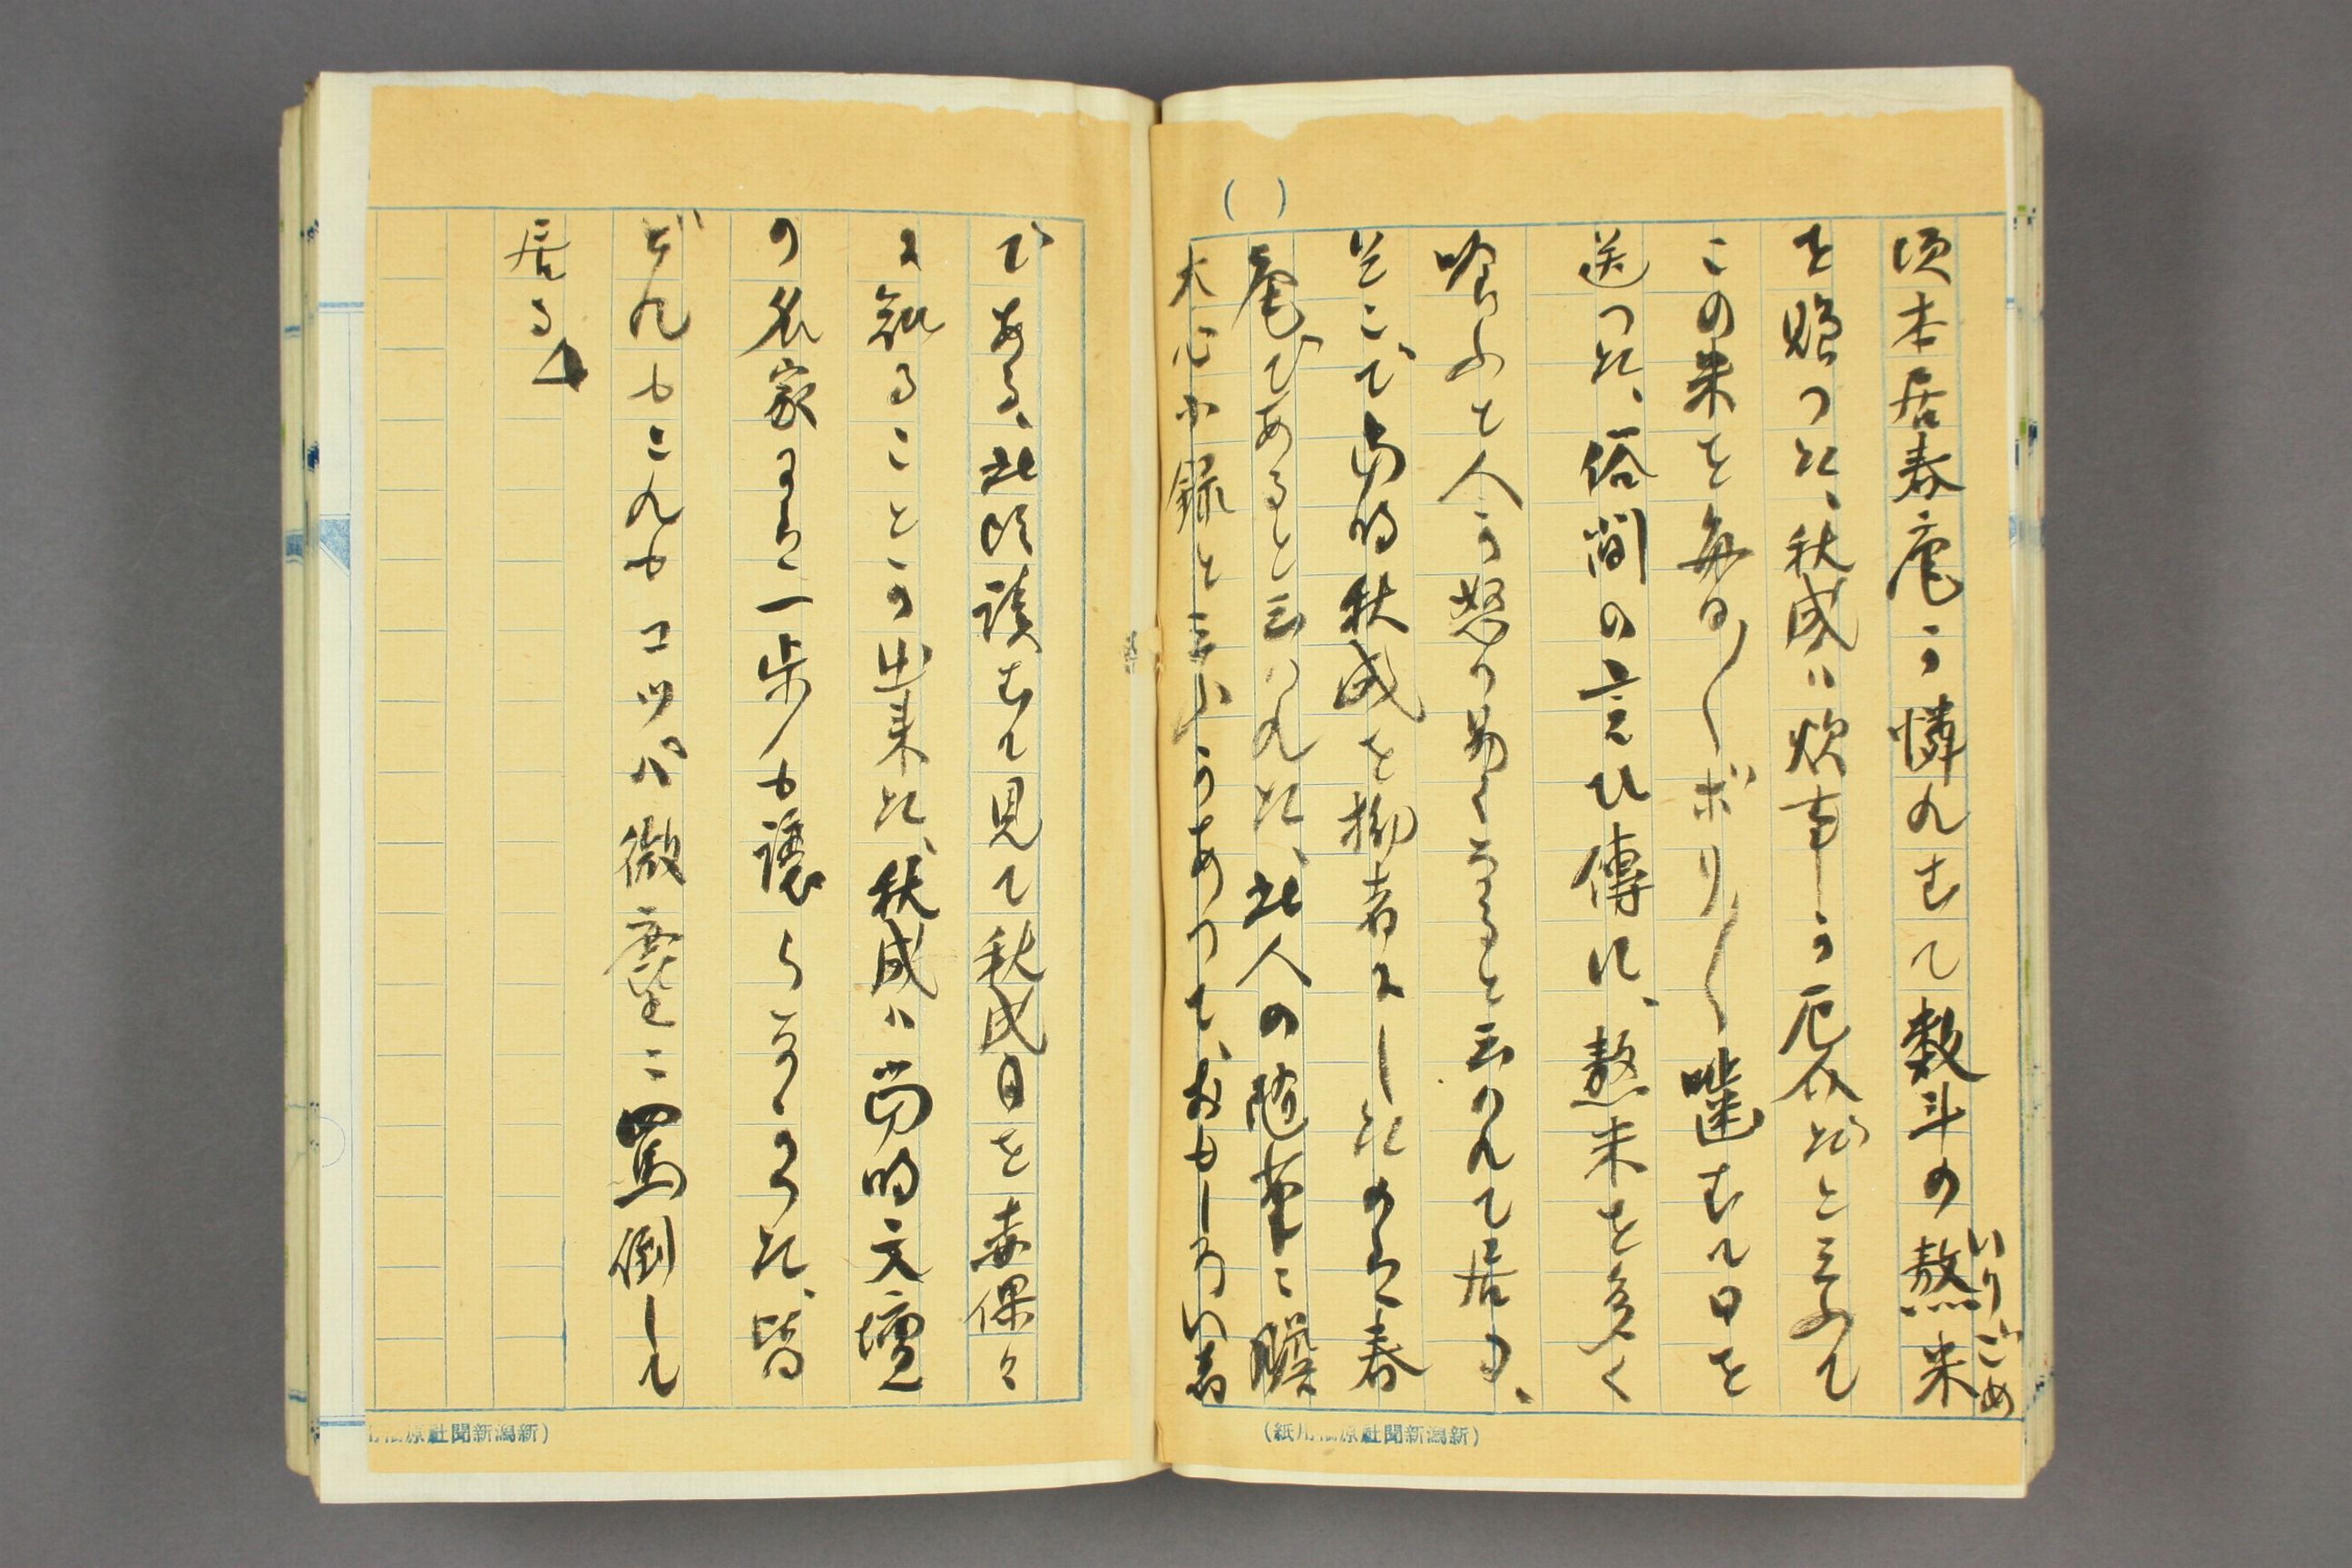 頃本居春庵が憐れむで数斗の熬米
いりごめ
を贈つた、秋成は炊事が厄介だと云ふて
この米を毎日〱ボリ〱噛むで日を
送つた、俗間の言ひ傳に、熬米を多く
喰ふと人が怒りぽくなると云われて居る、
そこで当時秋成を拗者にしたのは春
庵であると云はれた、此人の随筆に膽
大心小録と云ふがあつて、おもしろい書
である、此頃読むで見て秋成自を赤裸々
に知ることが出来た、秋成は当時文壇
の名家には一歩も譲らなかつた、皆
どれもこれもコッパ微塵に罵倒して
居る
(新潟新聞社原稿用紙)
(新潟新聞社原稿用